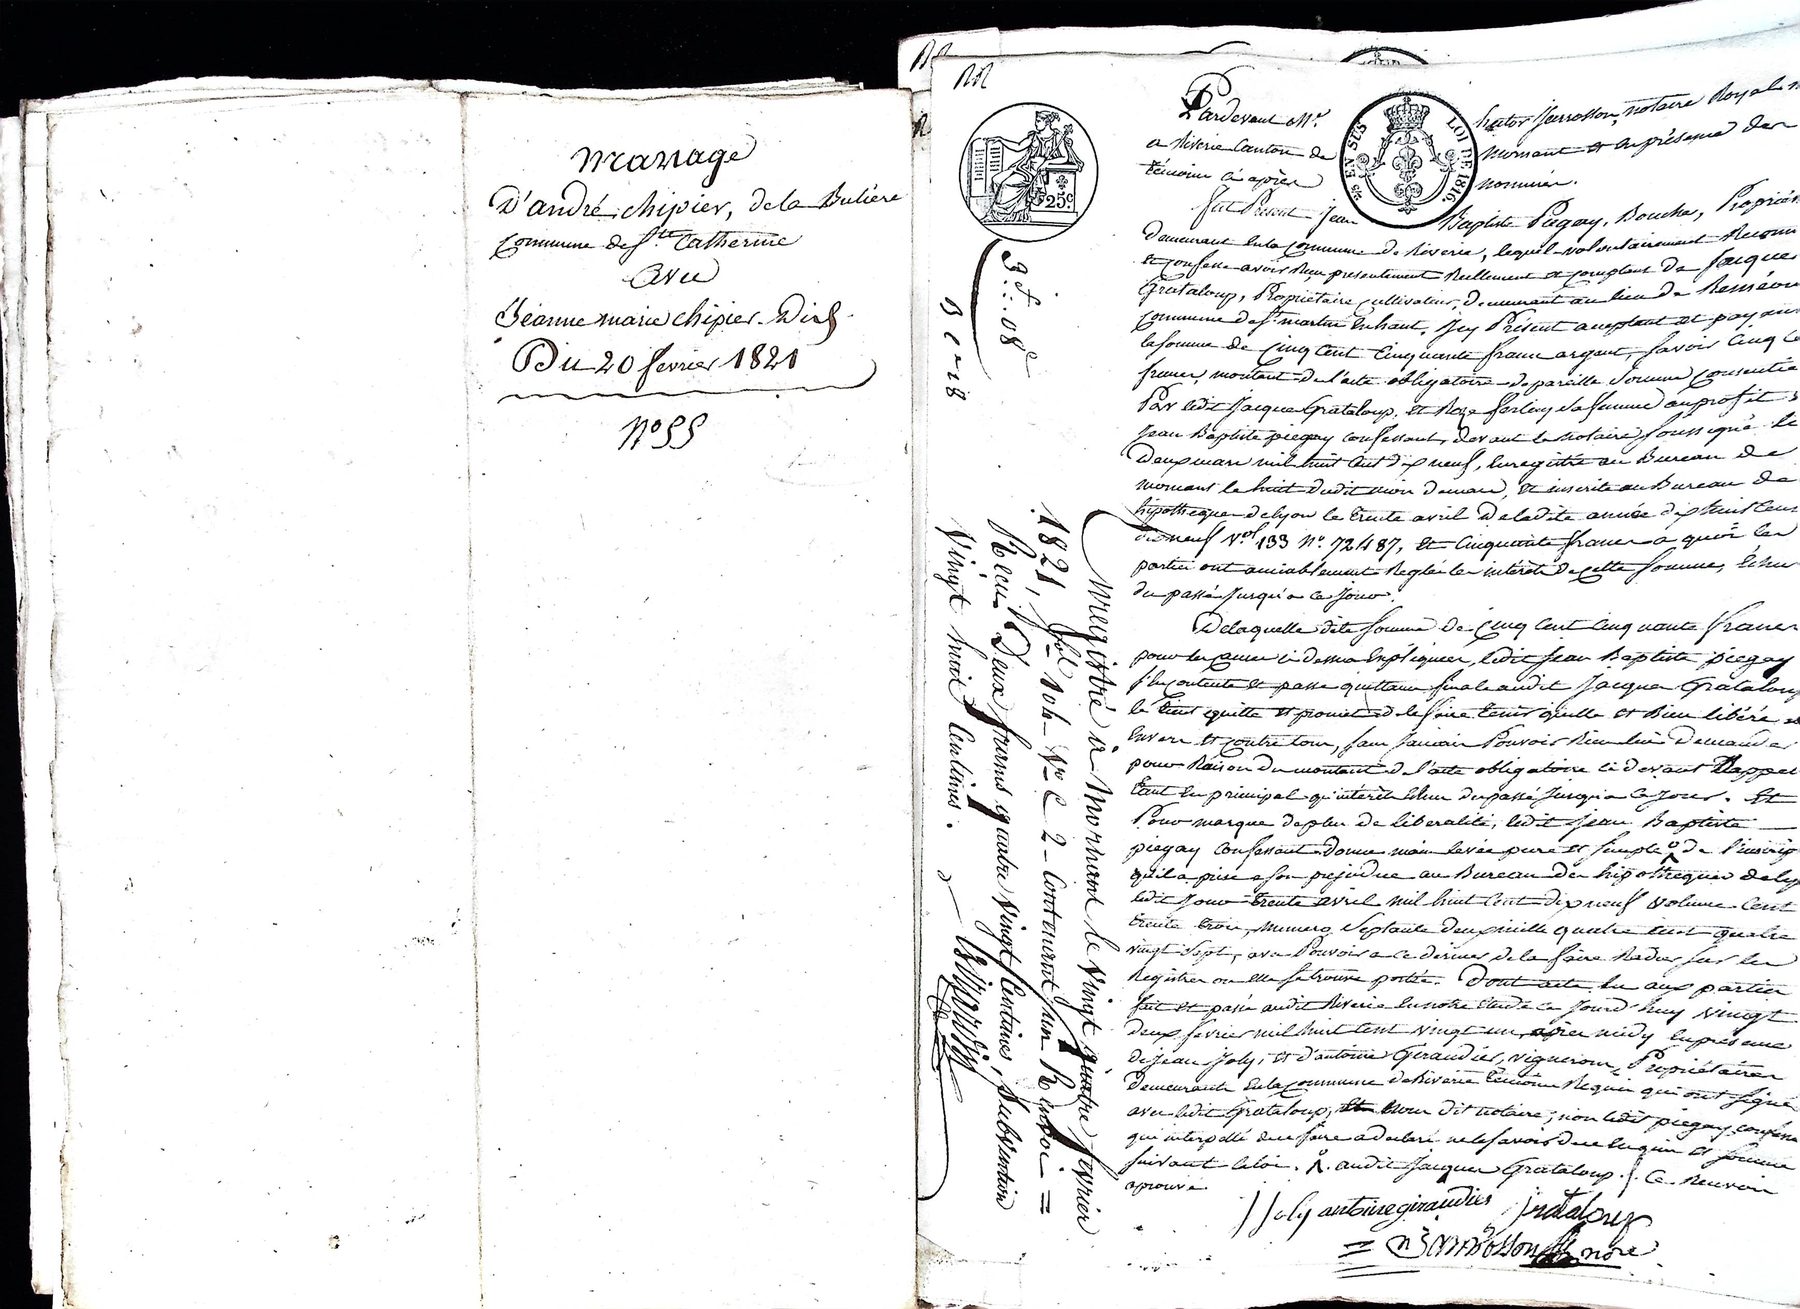 Mariage
D'andré chipier, de la Bulière
Commune de Ste Catherine
Avec
Jeanne marie chipier
Du 20 fevrier 1821
N° 55
25 c
25 EN SUS LOI DE 1816
Pardevant Me. hector Jarrosson, notaire Royal
a Riverie Canton de mornant et en présence des
témoins ci après nommés.
fut Present Jean Baptiste Piegay, Bouche, Propriét
demeurant en la commune de Riverie, lequel volontairement Reconn
et confesse avoir Reçu presentement Reellement et comptant de Jacques
Grataloup, Propriétaire Cultivateur, demeurant au lieu de
commune de St. martin en haut, icy Présent acceptant et payant
la somme de cinq cent cinquante francs argent, savoir cinq ce
francs, montant de l'acte obligatoire de pareille somme consentie
Par ledit Jacques Grataloup, et sa femme au profit
Jean Baptiste piegay confessant, devant le notaire soussigné le
deux mars mil huit cent dix neuf, enregistré au Bureau de
mornant le huit dudit mois de mars, et inscrite au Bureau des
hipotheques de lyon le trente avril de ladite année dix huit cent
dix neuf Vol 133 N°. 72487, et cinquante francs a quoi les
parties ont amiablement Reglé les intérêts de cette somme, échus
du passé jusqu'a ce jour.
De laquelle dite somme de cinq cent cinquante francs
pour les causes ci dessus Expliquées, ledit Jean Baptiste piegay
s'en contente et passe quittance finale audit Jacques Grataloup
le tient quitte et promet de le faire tenir quitte et Bien libéré
Envers et contre tous, sans jamais Pouvoir Rien lui demander
pour Raison du montant de l'acte obligatoire ci devant Rappel
tant en principal qu'intérêts échus du passé jusqu'a ce jour. Et
Pour marque de plus de liberalité, ledit Jean Baptiste
piegay confessant donne main levée pure et simple de l'inscrip
qu'il a prise a son prejudice au Bureau des hipotheques de ly
ledit jour trente avril mil huit cent dix neuf volume cent
trente trois, numero septante deux mille quatre cent quatre
vingt sept, avec Pouvoir a ce dernier de la faire Radier sur les
Registres ou elle se trouve portée. Dont acte lu aux parties
fait et passé audit Riverie en notre étude ce jourd'huy vingt
deux fevrier mil huit cent vingt un, après midy en présence
de Jean Joly, et d'antoine Giraudier, vignerons Propriétaires
demeurants en la commune de Riverie témoins Requis qui ont signé
avec ledit Grataloup, et nous dit notaire, non ledit piegay confess
qui interpellé de ce faire a declaré ne le savoir de ce enquis et sommé
suivant la loi. audit Jacques Grataloup. Ce Renvoi
aprouvé
J Joly antoine giraudier Grataloup
Jarrosson nore
3 f. 08 c
Enregistré à Mornant le vingt quatre fevrier
1821, fol 104 Vo C 2 contenant un Renvoi =
Recu Deux francs quatre vingt Centimes, subvention
Vingt huit Centimes.